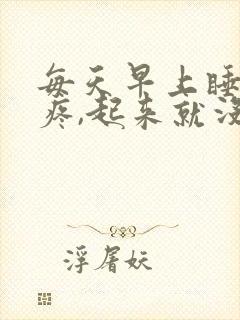 每天早上睡
疼,起来就没
浮屠妖